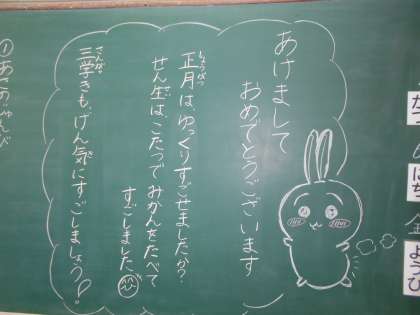 あけまして
おめでとうございます
正月は、ゆっくりすごせましたか？
せん生は、こたつでみかんをたべて
すごしました
三学きも、げん気にすごしましょう！
①あさのじゅんび
はち
よつひ